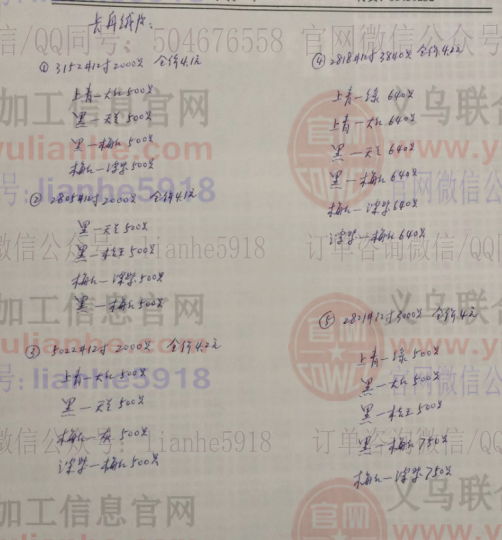 ① 3152#12寸2000只 全价4.1元
上青一大红500只
黑一天兰500只
黑一梅红500只
梅红一深紫500只
② 2805#10寸2000只 全价4.1元
黑一天兰500只
黑一桔红500只
梅红一深紫500只
黑一梅红500只
③ 5022#12寸2000只 全价4.2元
上青一大红500只
黑一天兰500只
梅红一灰500只
深紫一梅红500只
④ 2818#12寸3840只 全价4.2元
上青一绿640只
上青一大红640只
黑一天兰640只
黑一梅红640只
梅红一深紫640只
深紫一梅红640只
⑤ 2821#12寸3000只 全价4元
上青一绿500只
黑一大红500只
黑一桔红500只
黑一梅红750只
梅红一深紫750只
信/QQ同号: 504676558
官网微信公众号
加工信息官网
yulianhe.com
号: lianhe5918
微信公众号: lianhe5918
订单咨询微信/QQ
义乌联合
www.yulianhe
官网